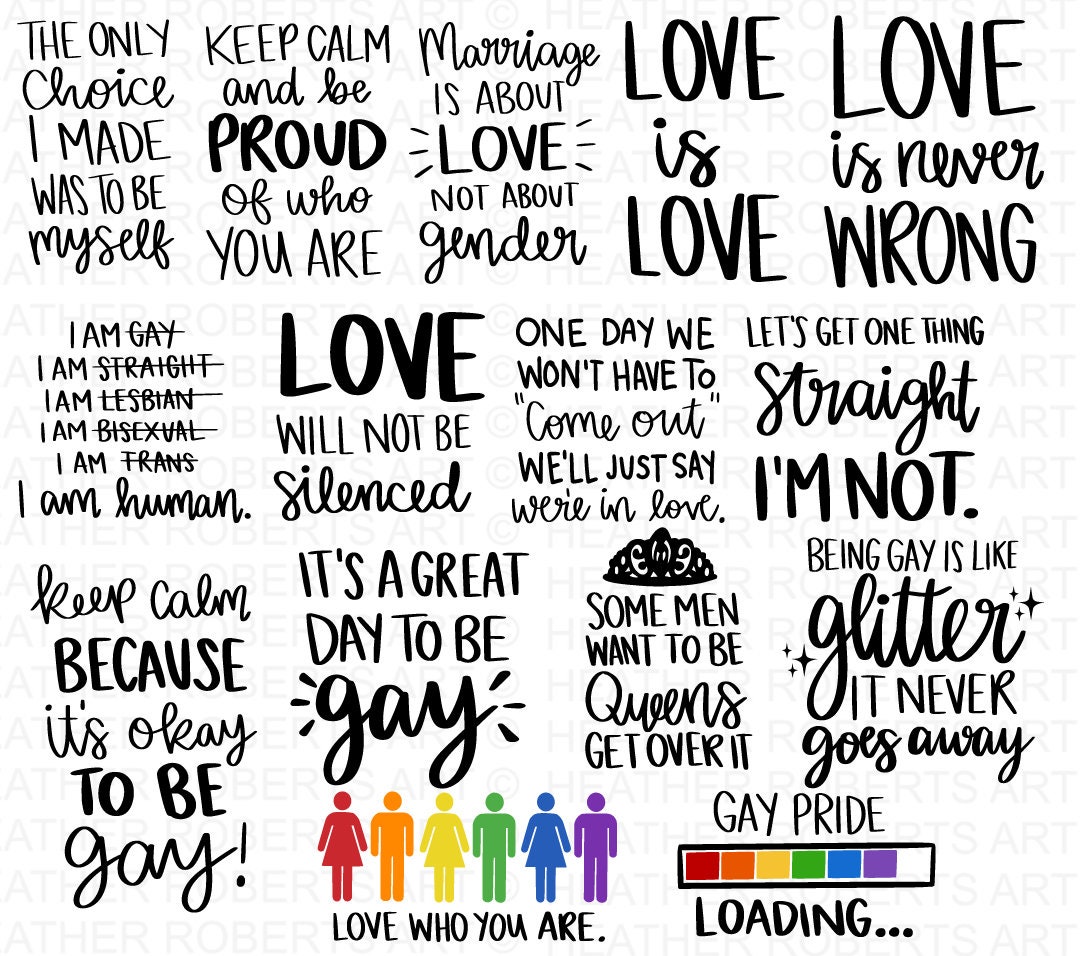 THE ONLY
Choice
I MADE
WAS TO BE
myself
KEEP CALM
and be
PROUD
of who
YOU ARE
Marriage
IS ABOUT
LOVE
NOT ABOUT
gender
LOVE
is
LOVE
LOVE
is never
WRONG
I AM GAY
I AM STRAIGHT
I AM LESBIAN
I AM BISEXUAL
I AM TRANS
I am human.
LOVE
WILL NOT BE
silenced
ONE DAY WE
WON'T HAVE TO
"Come out"
WE'LL JUST SAY
we're in love.
LET'S GET ONE THING
Straight
I'M NOT.
keep calm
BECAUSE
it's okay
TO BE
gay!
IT'S A GREAT
DAY TO BE
gay
SOME MEN
WANT TO BE
Queens
GET OVER IT
BEING GAY IS LIKE
glitter
IT NEVER
goes away
LOVE WHO YOU ARE.
GAY PRIDE
LOADING...
© HEATHER ROBERTS ART